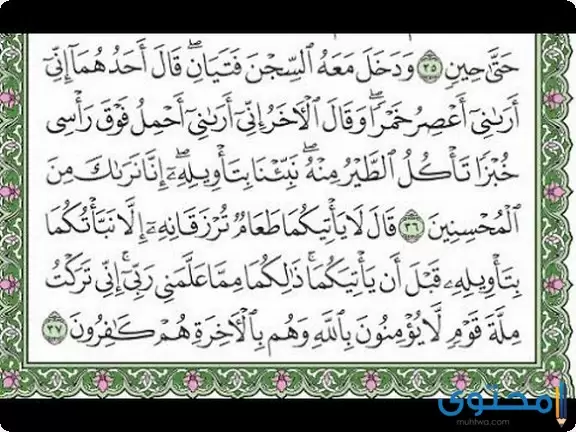 حَتَّىٰ حِينٍ ٣٥ وَدَخَلَ مَعَهُ السِّجْنَ فَتَيَانِ ۖ قَالَ أَحَدُهُمَا إِنِّي
أَرَىٰنِي أَعْصِرُ خَمْرًا ۖ وَقَالَ الْآخَرُ إِنِّي أَرَىٰنِي أَحْمِلُ فَوْقَ رَأْسِي
خُبْزًا تَأْكُلُ الطَّيْرُ مِنْهُ ۖ نَبِّئْنَا بِتَأْوِيلِهِ ۖ إِنَّا نَرَىٰكَ مِنَ
الْمُحْسِنِينَ ٣٦ قَالَ لَا يَأْتِيكُمَا طَعَامٌ تُرْزَقَانِهِ إِلَّا نَبَّأْتُكُمَا
بِتَأْوِيلِهِ قَبْلَ أَن يَأْتِيَكُمَا ۚ ذَٰلِكُمَا مِمَّا عَلَّمَنِي رَبِّي ۚ إِنِّي تَرَكْتُ
مِلَّةَ قَوْمٍ لَّا يُؤْمِنُونَ بِاللَّهِ وَهُم بِالْآخِرَةِ هُمْ كَٰفِرُونَ ٣٧
محتوى
muhtwa.com